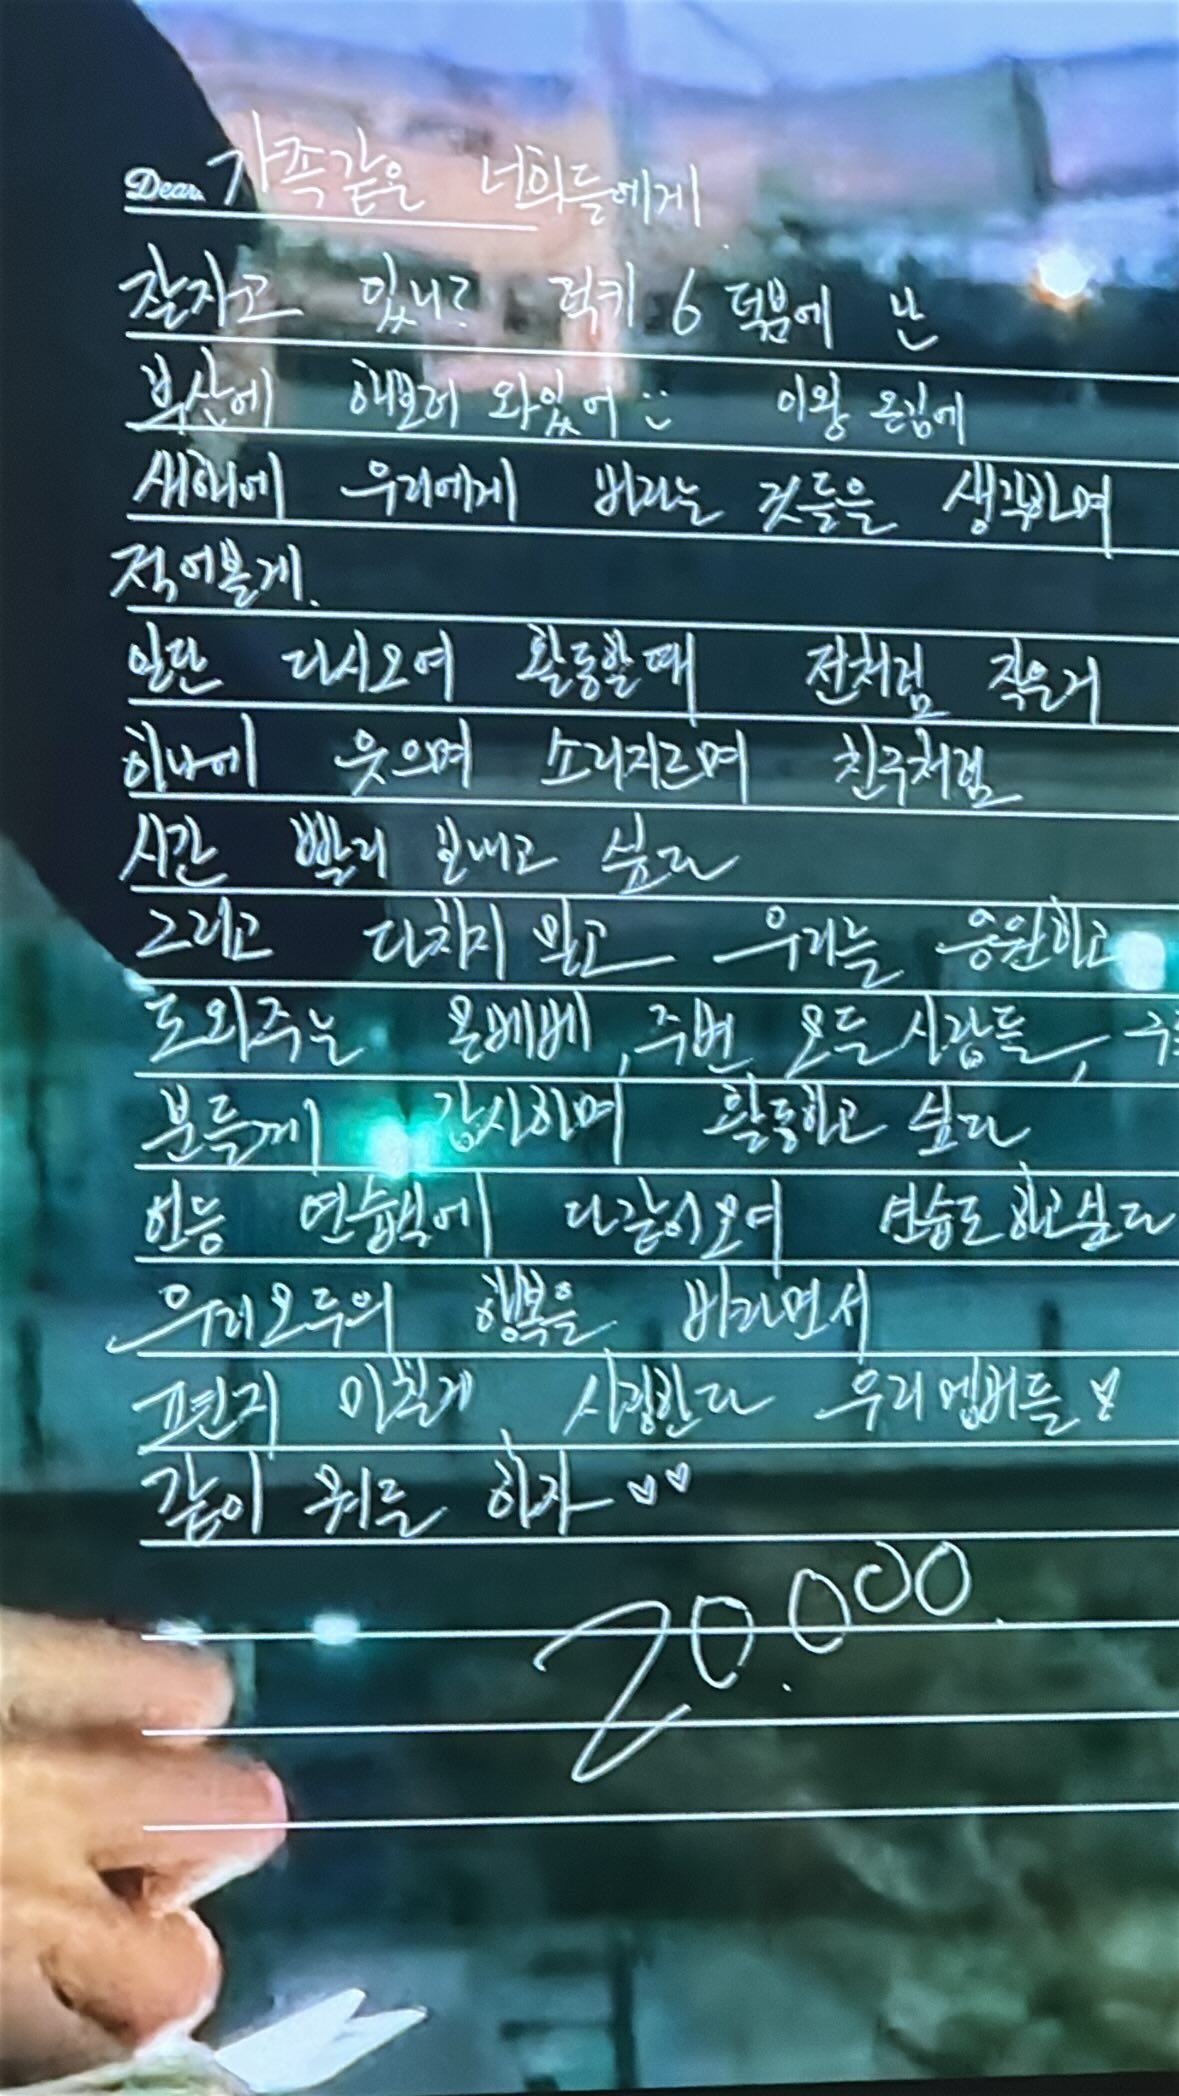 Dear. 가족같은 너희들에게
잘자고 있니? 럭키 6 덕분에 난
부산에 해보러 와있어 :: 이왕 온김에
새해에 우리에게 바라는 것들을 생각하며
적어볼게.
일단 다시모여 활동할때 전처럼 작은거
하나에 웃으며 소리지르며 친구처럼
시간 빨리 보내고 싶다
그리고 다치지 말고 우리를 응원하고
도와주는 몬베베, 주변 모든사람들,
분들께 감사하며 활동하고 싶다
연습실에 다같이모여 연습도하고싶다
우리모두의 행복을 바라면서
편지 마칠게 사랑한다 우리멤버들♡
같이 하자 ♡♡
20.000.